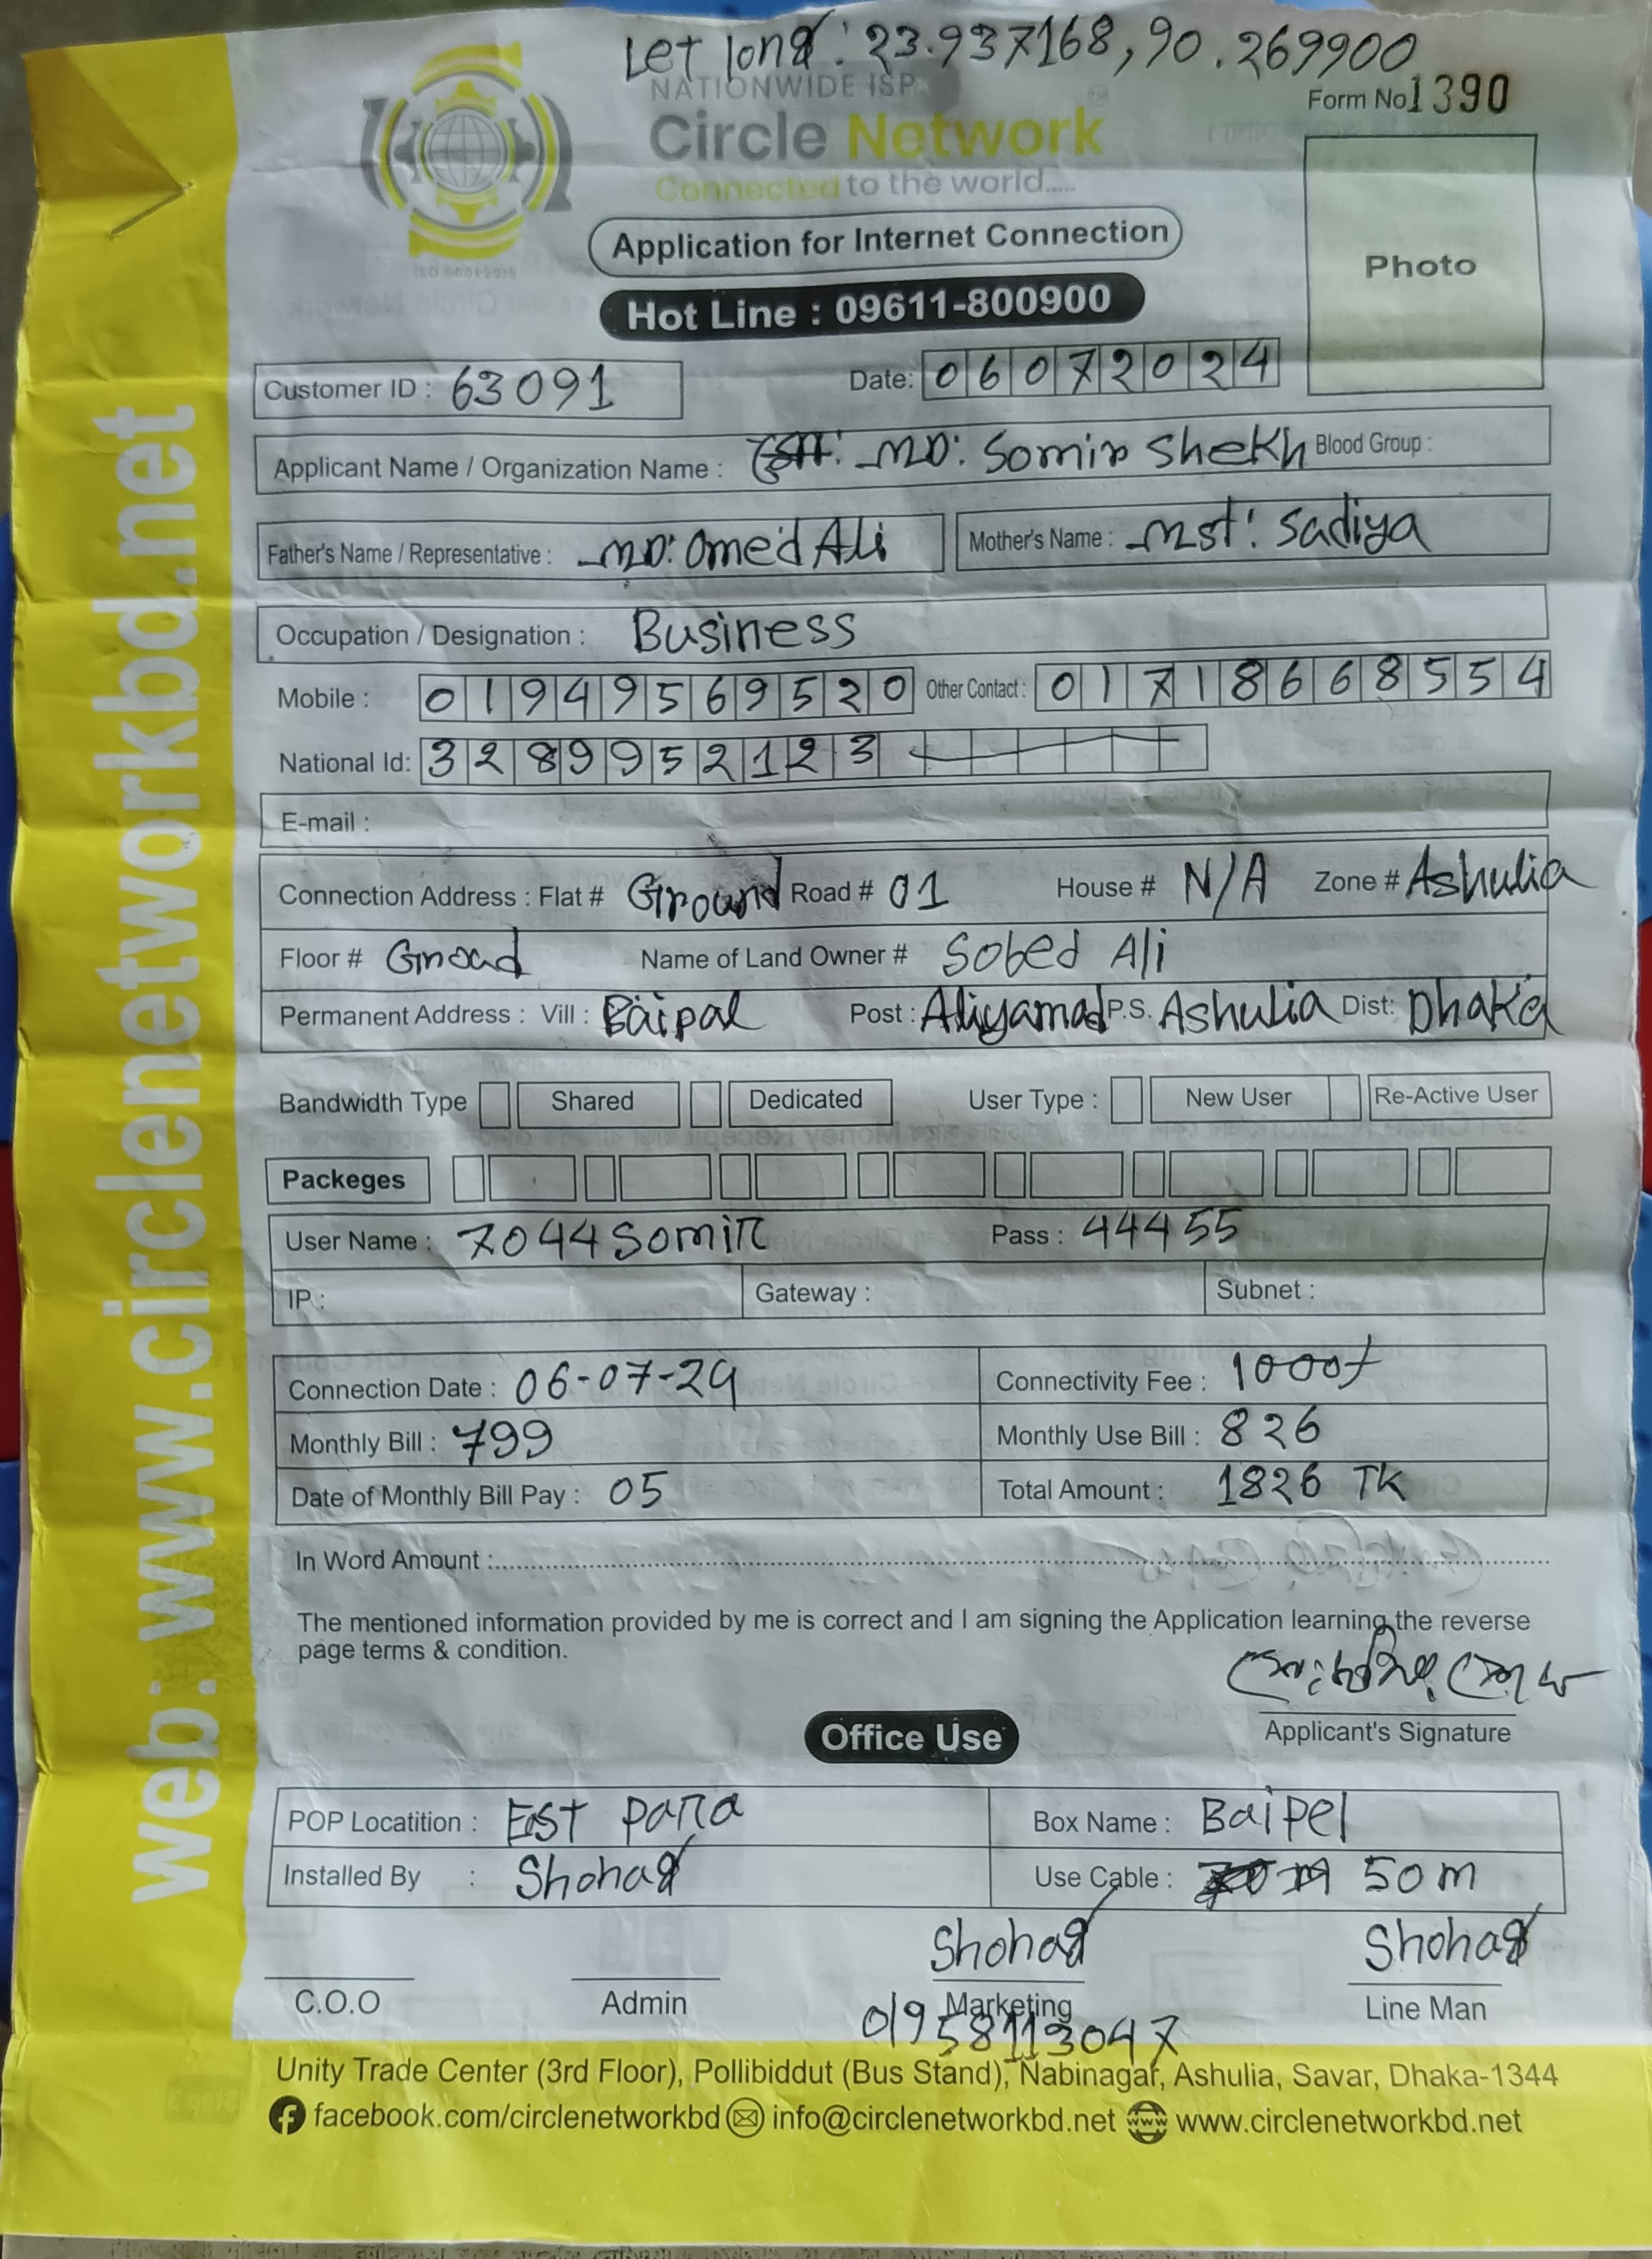 Let long: 23.937168,90.269900
NATIONWIDE ISP
Form No 1390
Circle Network
Connected to the world.....
ISO 9001:2015
Application for Internet Connection
Photo
Hot Line : 09611-800900
Customer ID : 63091 Date: 06072024
Applicant Name / Organization Name : MD: Somir Shekh Blood Group :
Father's Name / Representative : MD: Omed Ali Mother's Name : Mst: Sadiya
Occupation / Designation : Business
Mobile : 01949569520 Other Contact : 01718668554
National Id: 3289952123
E-mail :
Connection Address : Flat # Ground Road # 01 House # N/A Zone # Ashulia
Floor # Groad Name of Land Owner # Sobed Ali
Permanent Address : Vill : Baipal Post : Aliyamad P.S. Ashulia Dist: Dhaka
Bandwidth Type Shared Dedicated User Type : New User Re-Active User
Packeges
User Name : 7044somir Pass : 44455
IP : Gateway : Subnet :
Connection Date : 06-07-24 Connectivity Fee : 1000/
Monthly Bill : 799 Monthly Use Bill : 826
Date of Monthly Bill Pay : 05 Total Amount : 1826 TK
In Word Amount :
The mentioned information provided by me is correct and I am signing the Application learning the reverse
page terms & condition.
Applicant's Signature
Office Use
POP Locatition : East para Box Name : Baipel
Installed By : Shohag Use Cable : 50m
Shohag Shohag
C.O.O Admin Marketing Line Man
01958113047
Unity Trade Center (3rd Floor), Pollibiddut (Bus Stand), Nabinagar, Ashulia, Savar, Dhaka-1344
facebook.com/circlenetworkbd info@circlenetworkbd.net www.circlenetworkbd.net
web: www.circlenetworkbd.net